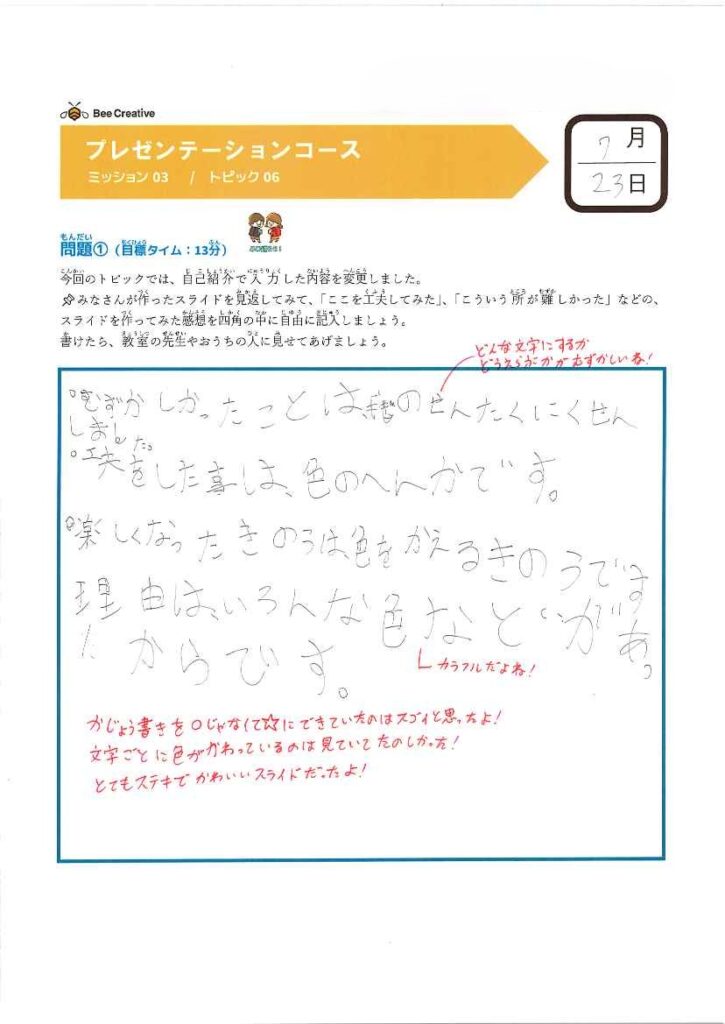 Bee Creative
プレゼンテーションコース
ミッション 03 / トピック 06
7月
23日
問題①（目標タイム：13分）
今回のトピックでは、自己紹介で入力した内容を変更しました。
みなさんが作ったスライドを見返してみて、「ここを工夫してみた」、「こういう所が難しかった」などの、
スライドを作ってみた感想を四角の中に自由に記入しましょう。
書けたら、教室の先生やおうちの人に見せてあげましょう。
どんな文字にするか
どうえらぶかがむずかしいね！
。むずかしかったことは、の せんたくにくせん
しました。
。工夫をした事は、色のへんかです。
。楽しくなったきのうは、色をかえるきのうです
理由は、いろんな色などがあ
からです。
カラフルだよね！
かじょう書きを○じゃなくて☆にできていたのはスゴイと思ったよ！
文字ごとに色がかわっているのは見ていてたのしかった！
とてもステキでかわいいスライドだったよ！